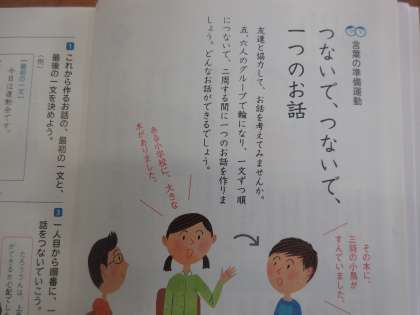 言葉の準備運動
つないで、つないで、
一つのお話
友達と協力して、お話を考えてみませんか。
五、六人のグループで輪になり、一文ずつ順
につないで、二周する間に一つのお話を作りま
しょう。どんなお話ができるでしょう。
ある小学校に、大きな
木がありました。
その木に、
三羽の小鳥が
すんでいました。
1 これから作るお話の、最初の一文と、
最後の一文を決めよう。
(例)
最初の一文
今日は運動会です。
3 一人目から順番に、一
話をつないでいこう。